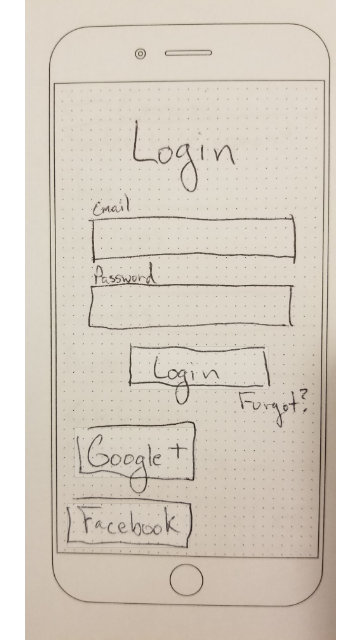 Login
Email
Password
Login
Forgot?
Google+
Facebook